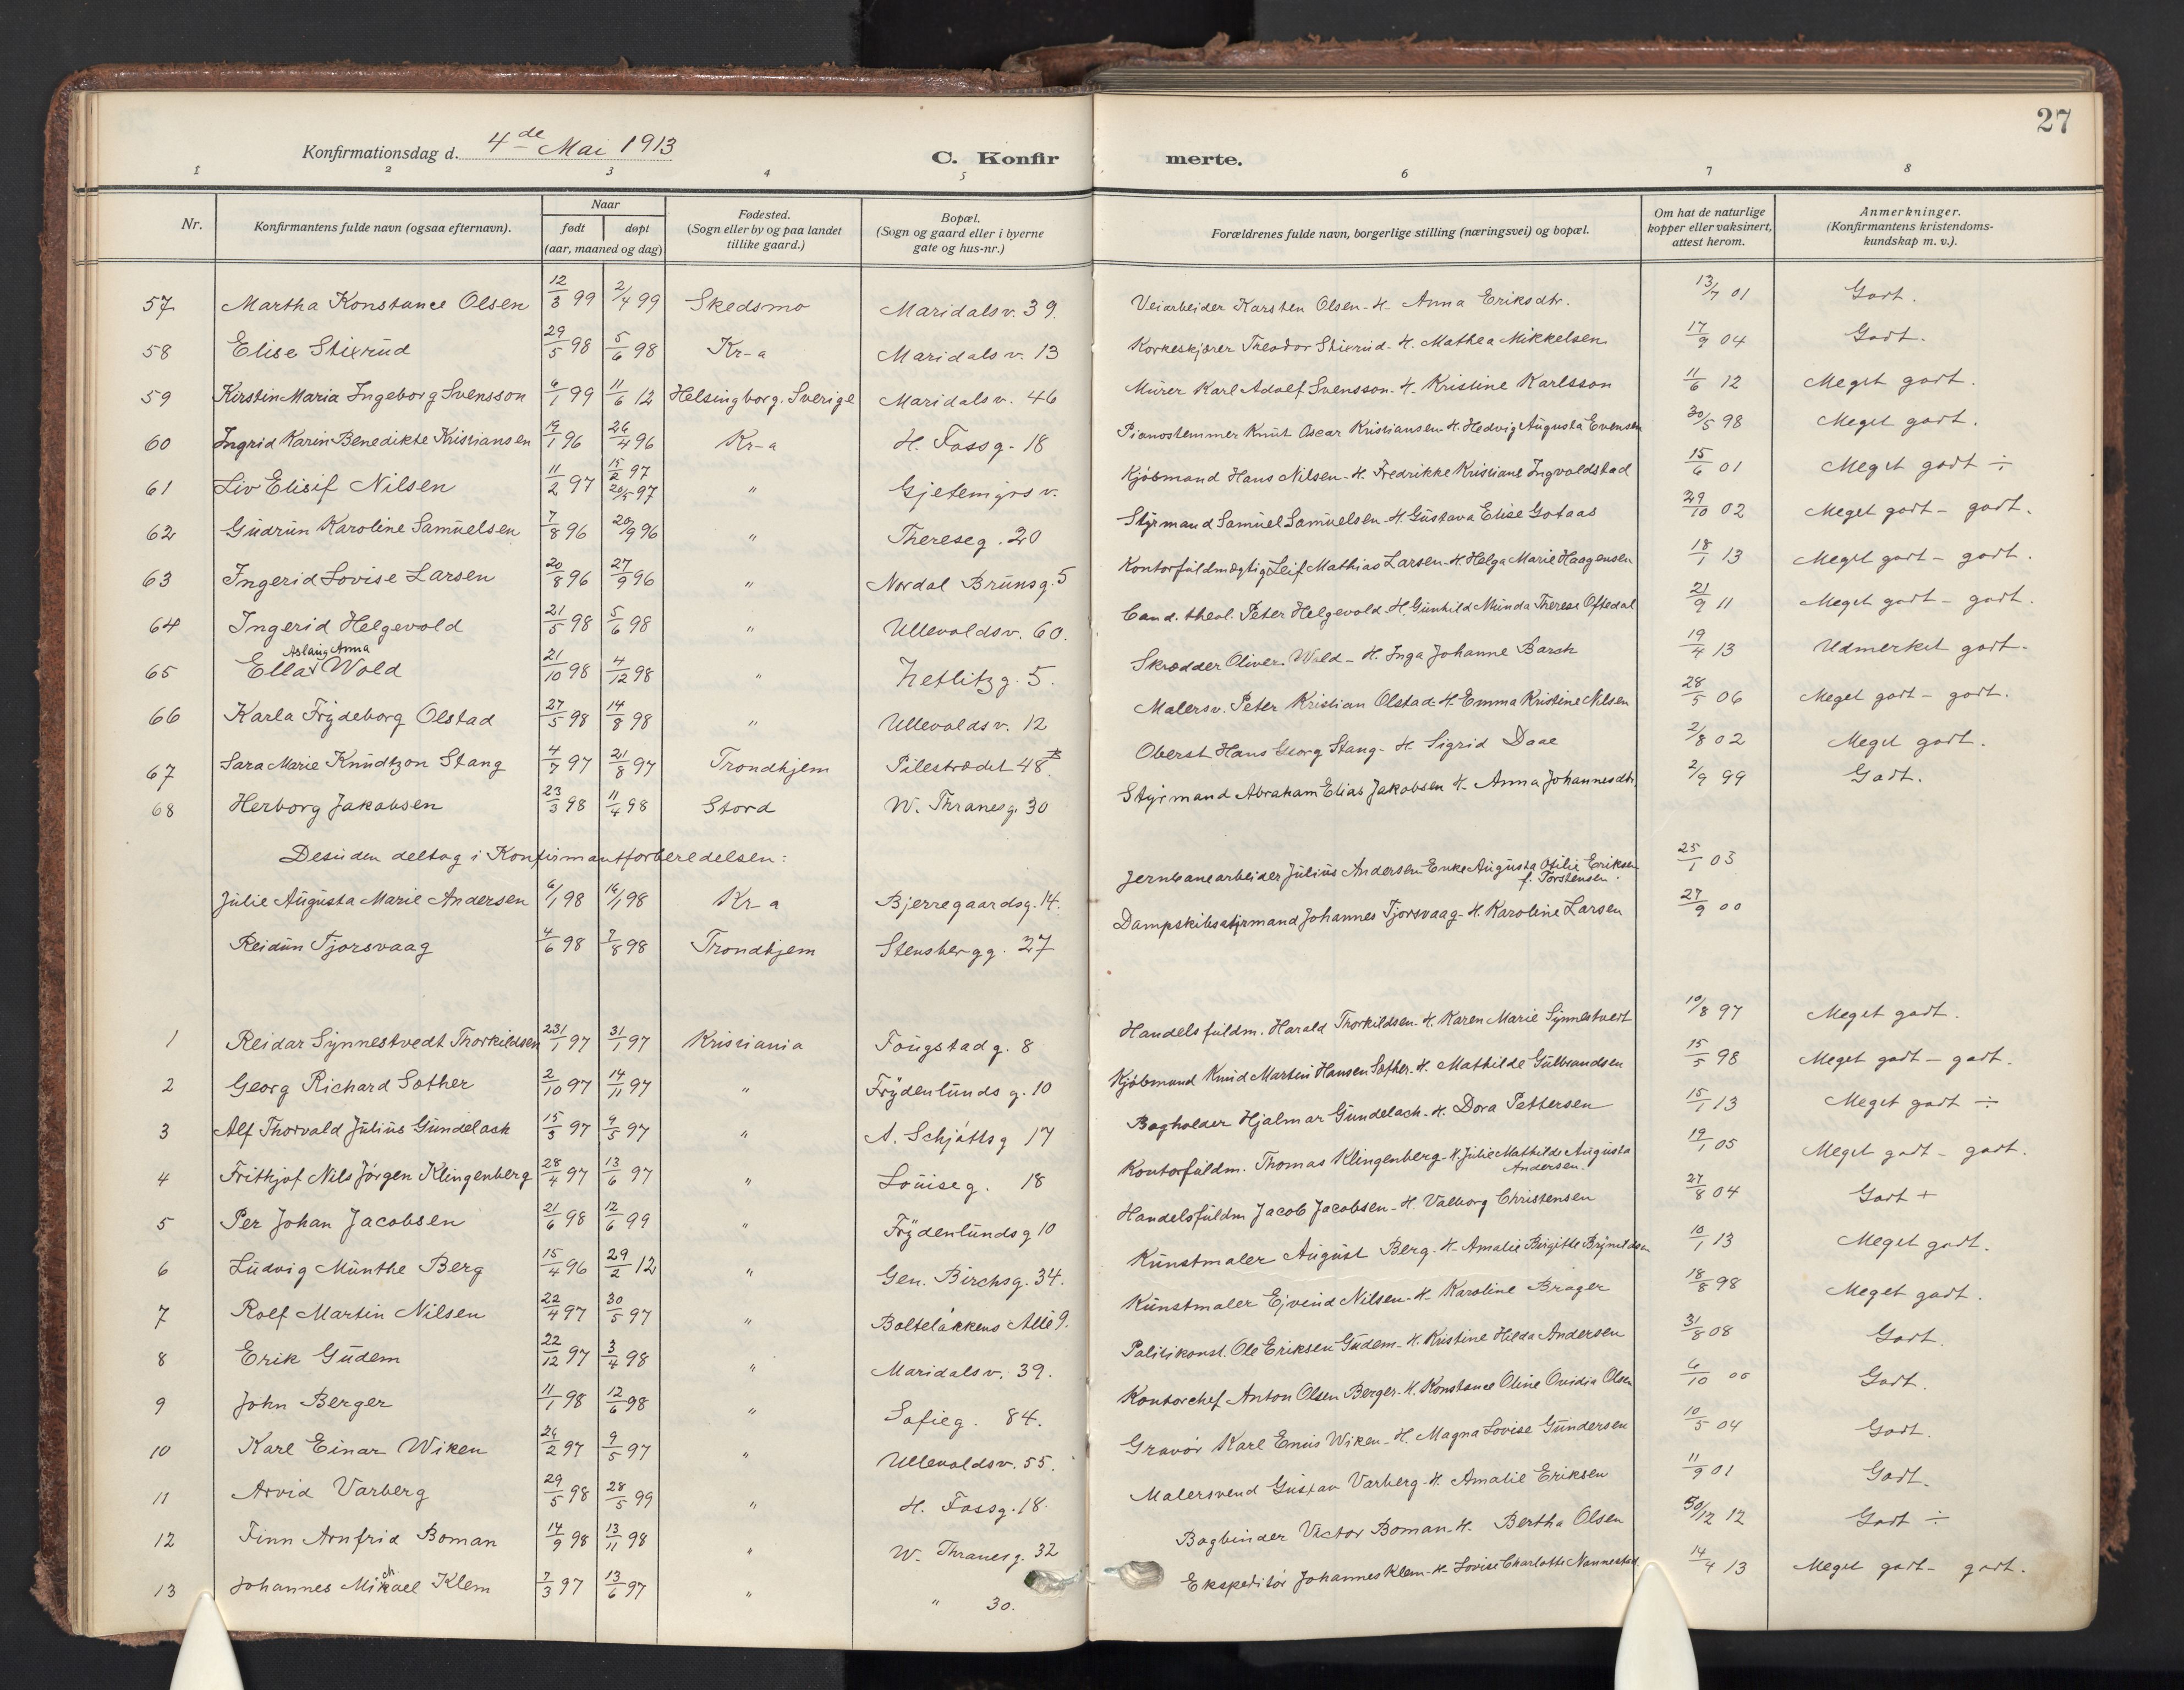 27
Konfirmationsdag d. 4de Mai 1913
C. Konfir merte.
1 2 3 4 5 6 7 8
Nr. Konfirmantens fulde navn (ogsaa efternavn). Naar født døpt (aar, maaned og dag) Fødested. (Sogn eller by og paa landet tillike gaard.) Bopæl. (Sogn og gaard eller i byerne gate og hus-nr.) Forældrenes fulde navn, borgerlige stilling (næringsvei) og bopæl. Om hat de naturlige kopper eller vaksinert, attest herom. Anmerkninger. (Konfirmantens kristendomskundskap m. v.).
57 Martha Konstance Olsen 12/3 99 2/4 99 Skedsmo Maridalsv. 39. Veiarbeider Karsten Olsen - H. Anna Eriksdtr. 13/7 01 Godt.
58 Elise Stixrud 29/5 98 5/6 98 Kr-a Maridalsv. 13 Korkeskjærer Theodor Stixrud - H. Mathea Mikkelsen 17/9 04 Godt.
59 Kirstin Maria Ingeborg Svensson 6/1 99 11/6 12 Helsingborg. Sverige Maridalsv. 46 Murer Karl Adolf Svensson - H. Kristine Karlsson 11/6 12 Meget godt.
60 Ingrid Karin Benedikte Kristiansen 19/1 96 26/4 96 Kr-a H. Fossg. 18 Pianostemmer Knut Oscar Kristiansen - H. Hedvig Augusta Evensen 30/5 98 Meget godt.
61 Liv Elisif Nilsen 11/2 97 15/2 97 20/5 97 " Gjetemyrsv. Kjøbmand Hans Nilsen - H. Fredrikke Kristiane Ingvaldstad 15/6 01 Meget godt ÷
62 Gudrun Karoline Samuelsen 7/8 96 20/9 96 " Thereseg. 20 Styrmand Samuel Samuelsen - H. Gustava Elise Gotaas 29/10 02 Meget godt - godt.
63 Ingerid Lovise Larsen 20/8 96 27/9 96 " Nordal Brunsg. 5 Kontorfuldmægtig Leif Mathias Larsen - H. Helga Marie Haagensen 18/1 13 Meget godt - godt.
64 Ingerid Helgevold 21/5 98 5/6 98 " Ullevoldsv. 60. Cand. theol. Peter Helgevold - H. Gunhild Munda Therese Oftedal 21/9 11 Meget godt - godt.
65 Ella Aslaug Anna Wold 21/10 98 4/12 98 " Zetlitzg. 5. Skrædder Oliver Wold - H. Inga Johanne Barch 19/4 13 Udmerket godt.
66 Karla Frydeborg Olstad 27/5 98 14/8 98 " Ullevoldsv. 12 Malersv. Peter Kristian Olstad - H. Emma Kristine Nilsen 28/5 06 Meget godt - godt.
67 Sara Marie Knudtzon Stang 4/7 97 21/8 97 Trondhjem Pilestrædet 48 B. Oberst Hans Georg Stang - H. Sigrid Daae 2/8 02 Meget godt.
68 Herborg Jakobsen 23/3 98 11/4 98 Stord W. Thranesg. 30 Styrmand Abraham Elias Jakobsen H. Anna Johannesdtr. 2/9 99 Godt.
Desuden deltog i Konfirmantforberedelsen:
Julie Augusta Marie Andersen 6/1 98 16/1 98 Kr-a Bjerregaardsg. 14. Jernbanearbeider Julius Andersen - Enke Augusta Otilie Eriksen f. Torstensen. 25/1 03
Reidun Tjorsvaag 4/6 98 7/8 98 Trondhjem Stensbergg. 27 Dampskibsstyrmand Johannes Tjorsvaag - H. Karoline Larsen 27/9 00
1 Reidar Synnestvedt Thorkildsen 23/1 97 31/1 97 Kristiania Fougstadg. 8 Handelsfuldm. Harald Thorkildsen - H. Karen Marie Synnestvedt 10/8 97 Meget godt.
2 Georg Richard Sæther 2/10 97 14/11 97 " Frydenlundsg. 10 Kjøbmand Knud Martin Hansen Sæther - H. Mathilde Gulbrandsen 15/5 98 Meget godt - godt.
3 Alf Thorvald Julius Gundelach 15/3 97 9/5 97 " A. Schjøttsg 17 Bogholder Hjalmar Gundelach - H. Dora Pettersen 15/1 13 Meget godt ÷
4 Frithjof Nils Jørgen Klingenberg 28/4 97 13/6 97 " Louiseg. 18 Kontorfuldm. Thomas Klingenberg - H. Julie Mathilde Augusta Andersen. 19/1 05 Meget godt - godt.
5 Per Johan Jacobsen 21/6 98 12/6 99 " Frydenlundsg 10 Handelsfuldm Jacob Jacobsen - H. Valborg Christensen 27/8 04 Godt +
6 Ludvig Munthe Berg 15/4 96 29/2 12 " Gen. Birchsg. 34. Kunstmaler August Berg - H. Amalie Birgitte Brynildsen 10/1 13 Meget godt.
7 Rolf Martin Nilsen 22/4 97 30/5 97 " Bolteløkkens Allé 9. Kunstmaler Ejvind Nilsen - H. Karoline Brager 18/8 98 Meget godt.
8 Erik Gudem 22/12 97 3/4 98 " Maridalsv. 39. Politikonst. Ole Eriksen Gudem - H. Kristine Hilda Andersen 31/8 08 Godt.
9 John Berger 11/1 98 12/6 98 " Sofieg. 84. Kontorchef Anton Olsen Berger - H. Konstance Oline Ovidia Olsen 6/10 00 Godt.
10 Karl Einar Wiken 24/2 97 9/5 97 " Ullevoldsv. 55. Gravør Karl Enius Wiken - H. Magna Lovise Gundersen 10/5 04 Godt.
11 Arvid Varberg 29/5 98 28/5 99 " H. Fossg. 18. Malersvend Gustav Varberg - H. Amalie Eriksen 11/9 01 Godt.
12 Finn Arnfrid Boman 14/9 98 13/11 98 " W. Thranesg. 32 Bogbinder Victor Boman - H. Bertha Olsen 30/12 12 Godt ÷
13 Johannes Michael Klem 7/3 97 13/6 97 " " 30. Ekspeditør Johannes Klem - H. Lovise Charlotte Nannestad 14/4 13 Meget godt - godt.